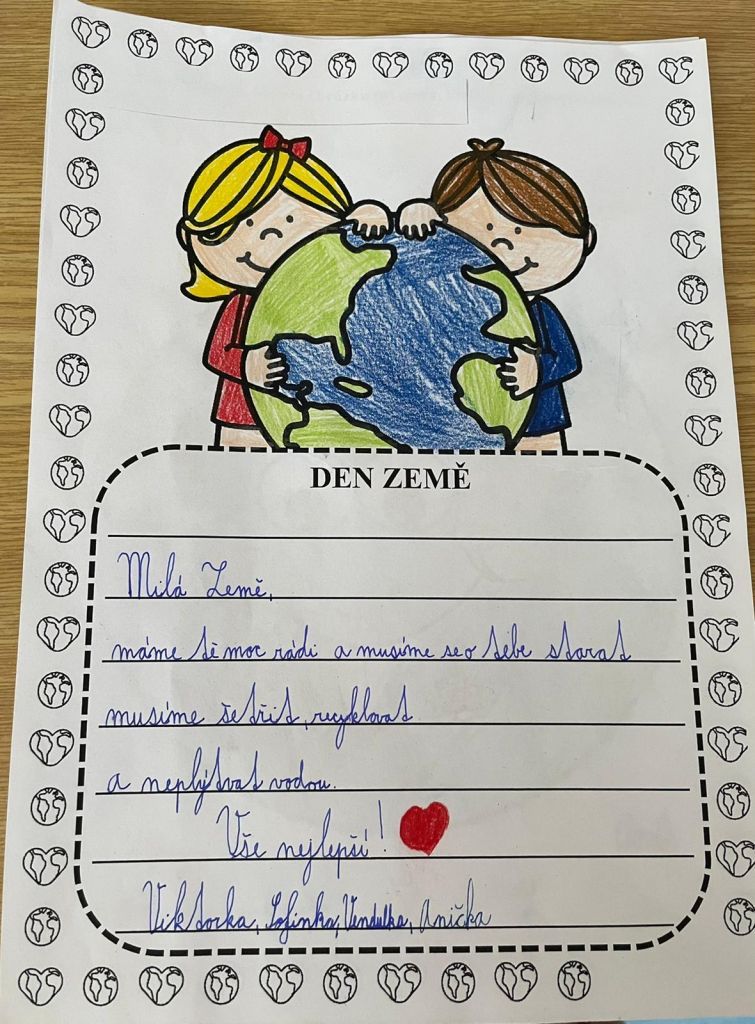 DEN ZEMĚ
Milá Země,
máme tě moc rádi a musíme se o tebe starat
musíme šetřit, recyklovat
a neplýtvat vodou.
Vše nejlepší!
Viktorka, Sofinka, Vendulka, Anička